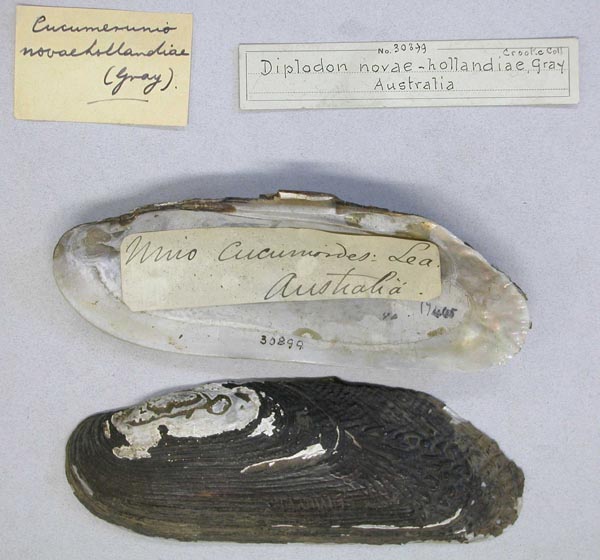 Cucumerunio
novaehollandiae
(Gray).
No. 30899 Crooke Coll
Diplodon novae-hollandiae, Gray
Australia
Unio Cucumoides: Lea.
Australia.
30899